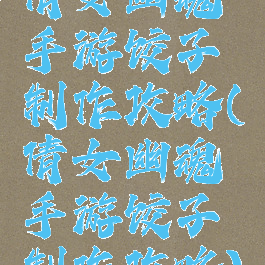 倩女幽魂
手游饺子
制作攻略(
倩女幽魂
手游饺子
制作攻略)